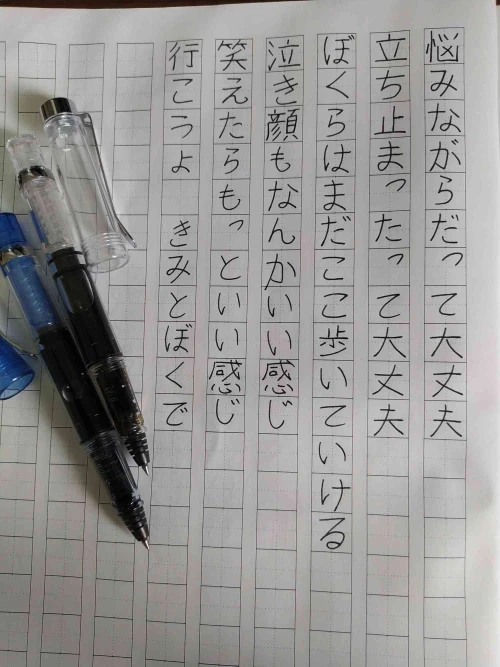 悩みながらだって大丈夫
立ち止まったって大丈夫
ぼくらはまだここ歩いていける
泣き顔もなんかいい感じ
笑えたらもっといい感じ
行こうよ　きみとぼくで